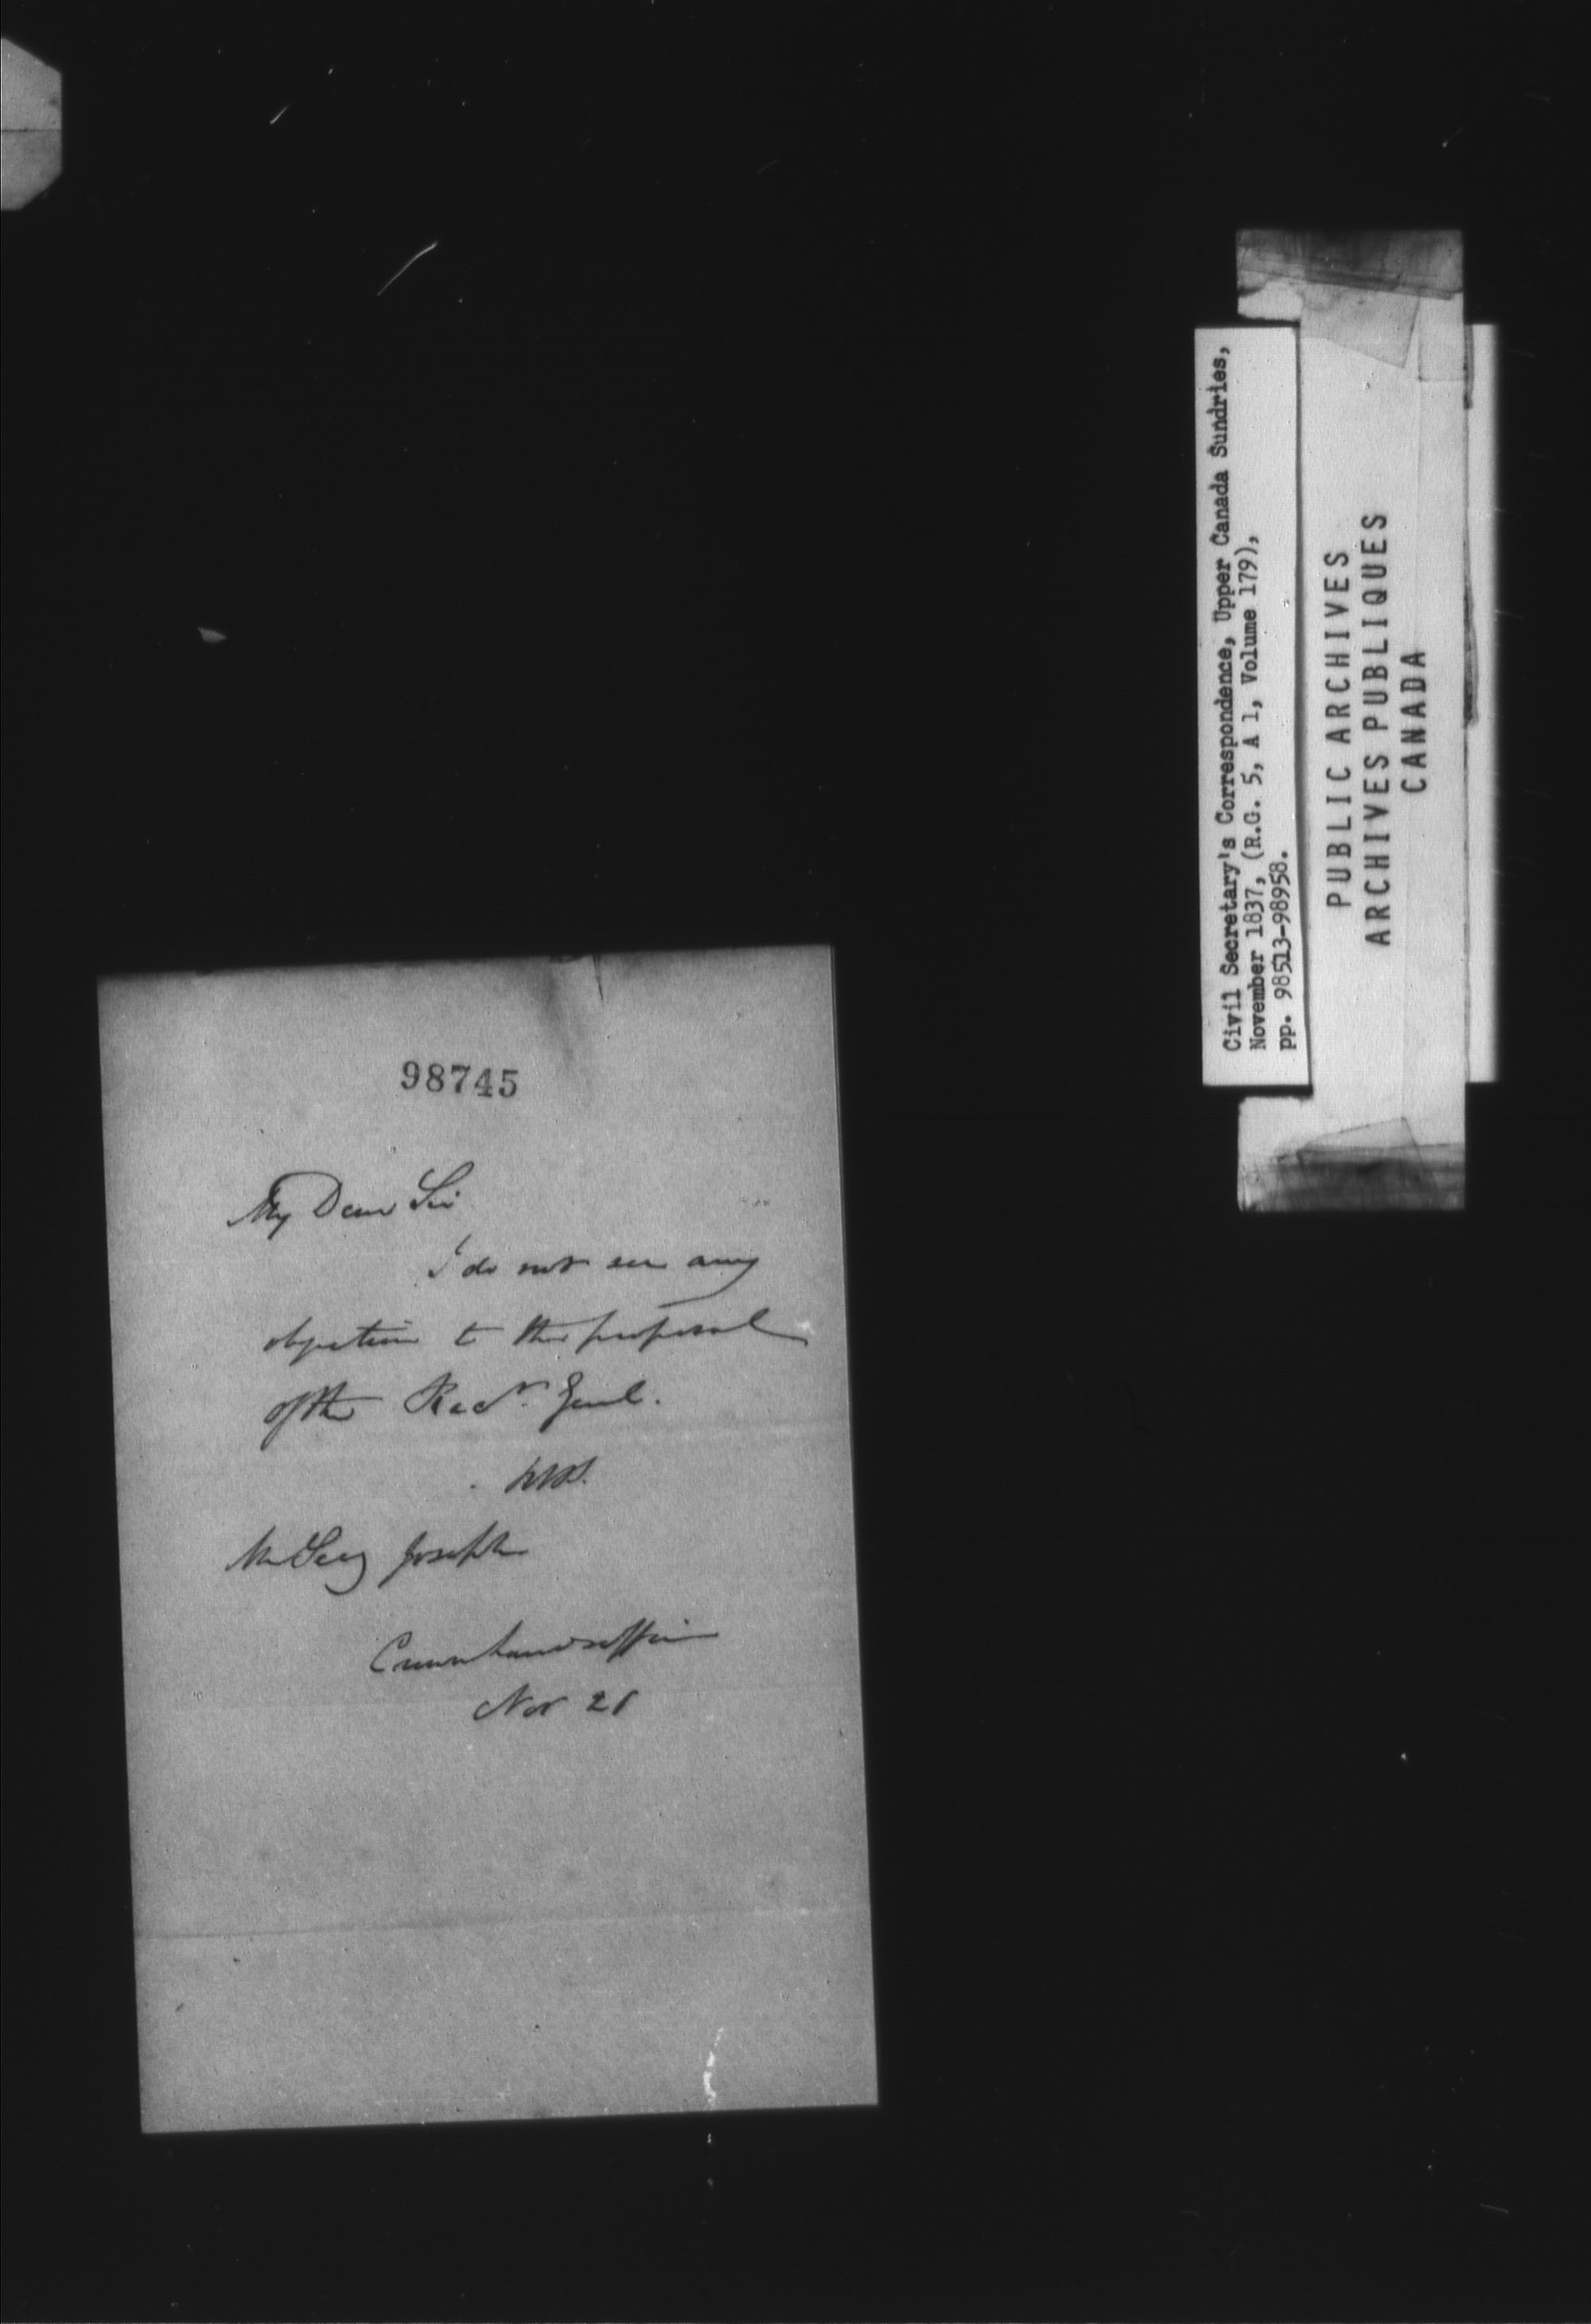 98745
My Dear Sir
I do not see any
objection to the proposal
of the Recr. Genl.
Mr Secy Joseph
Crown Lands Office
Nov 21
Civil Secretary's Correspondence, Upper Canada Sundries,
November 1837, (R.G. 5, A 1, Volume 179),
pp. 98513-98958.
PUBLIC ARCHIVES
ARCHIVES PUBLIQUES
CANADA